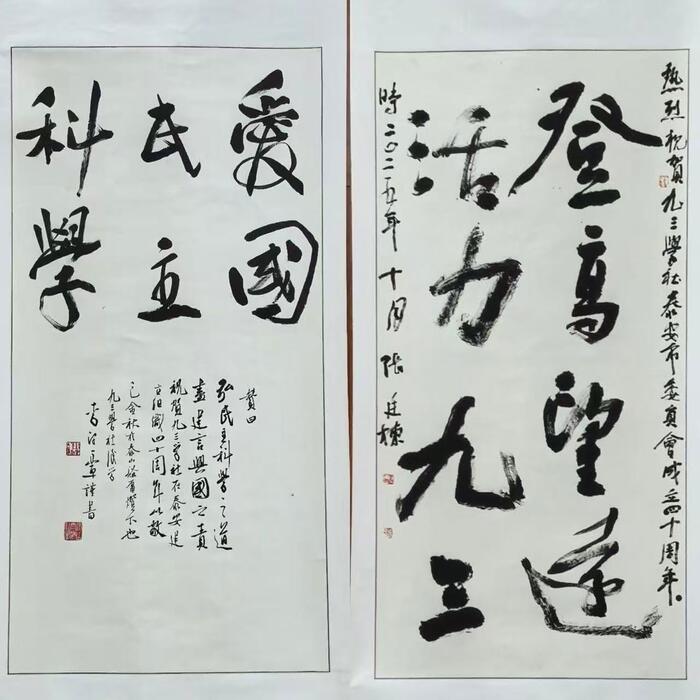 愛國
民主
科學
贊曰
弘民主科學之道
盡建言興國之責
祝賀九三學社在泰安建
立組織四十周年以敬
乙巳金秋於泰山
九三學社後學
書
熱烈祝賀九三學社泰安市委員會成立四十周年。
登高望遠
活力九三
時二〇二五年十月張廷棟